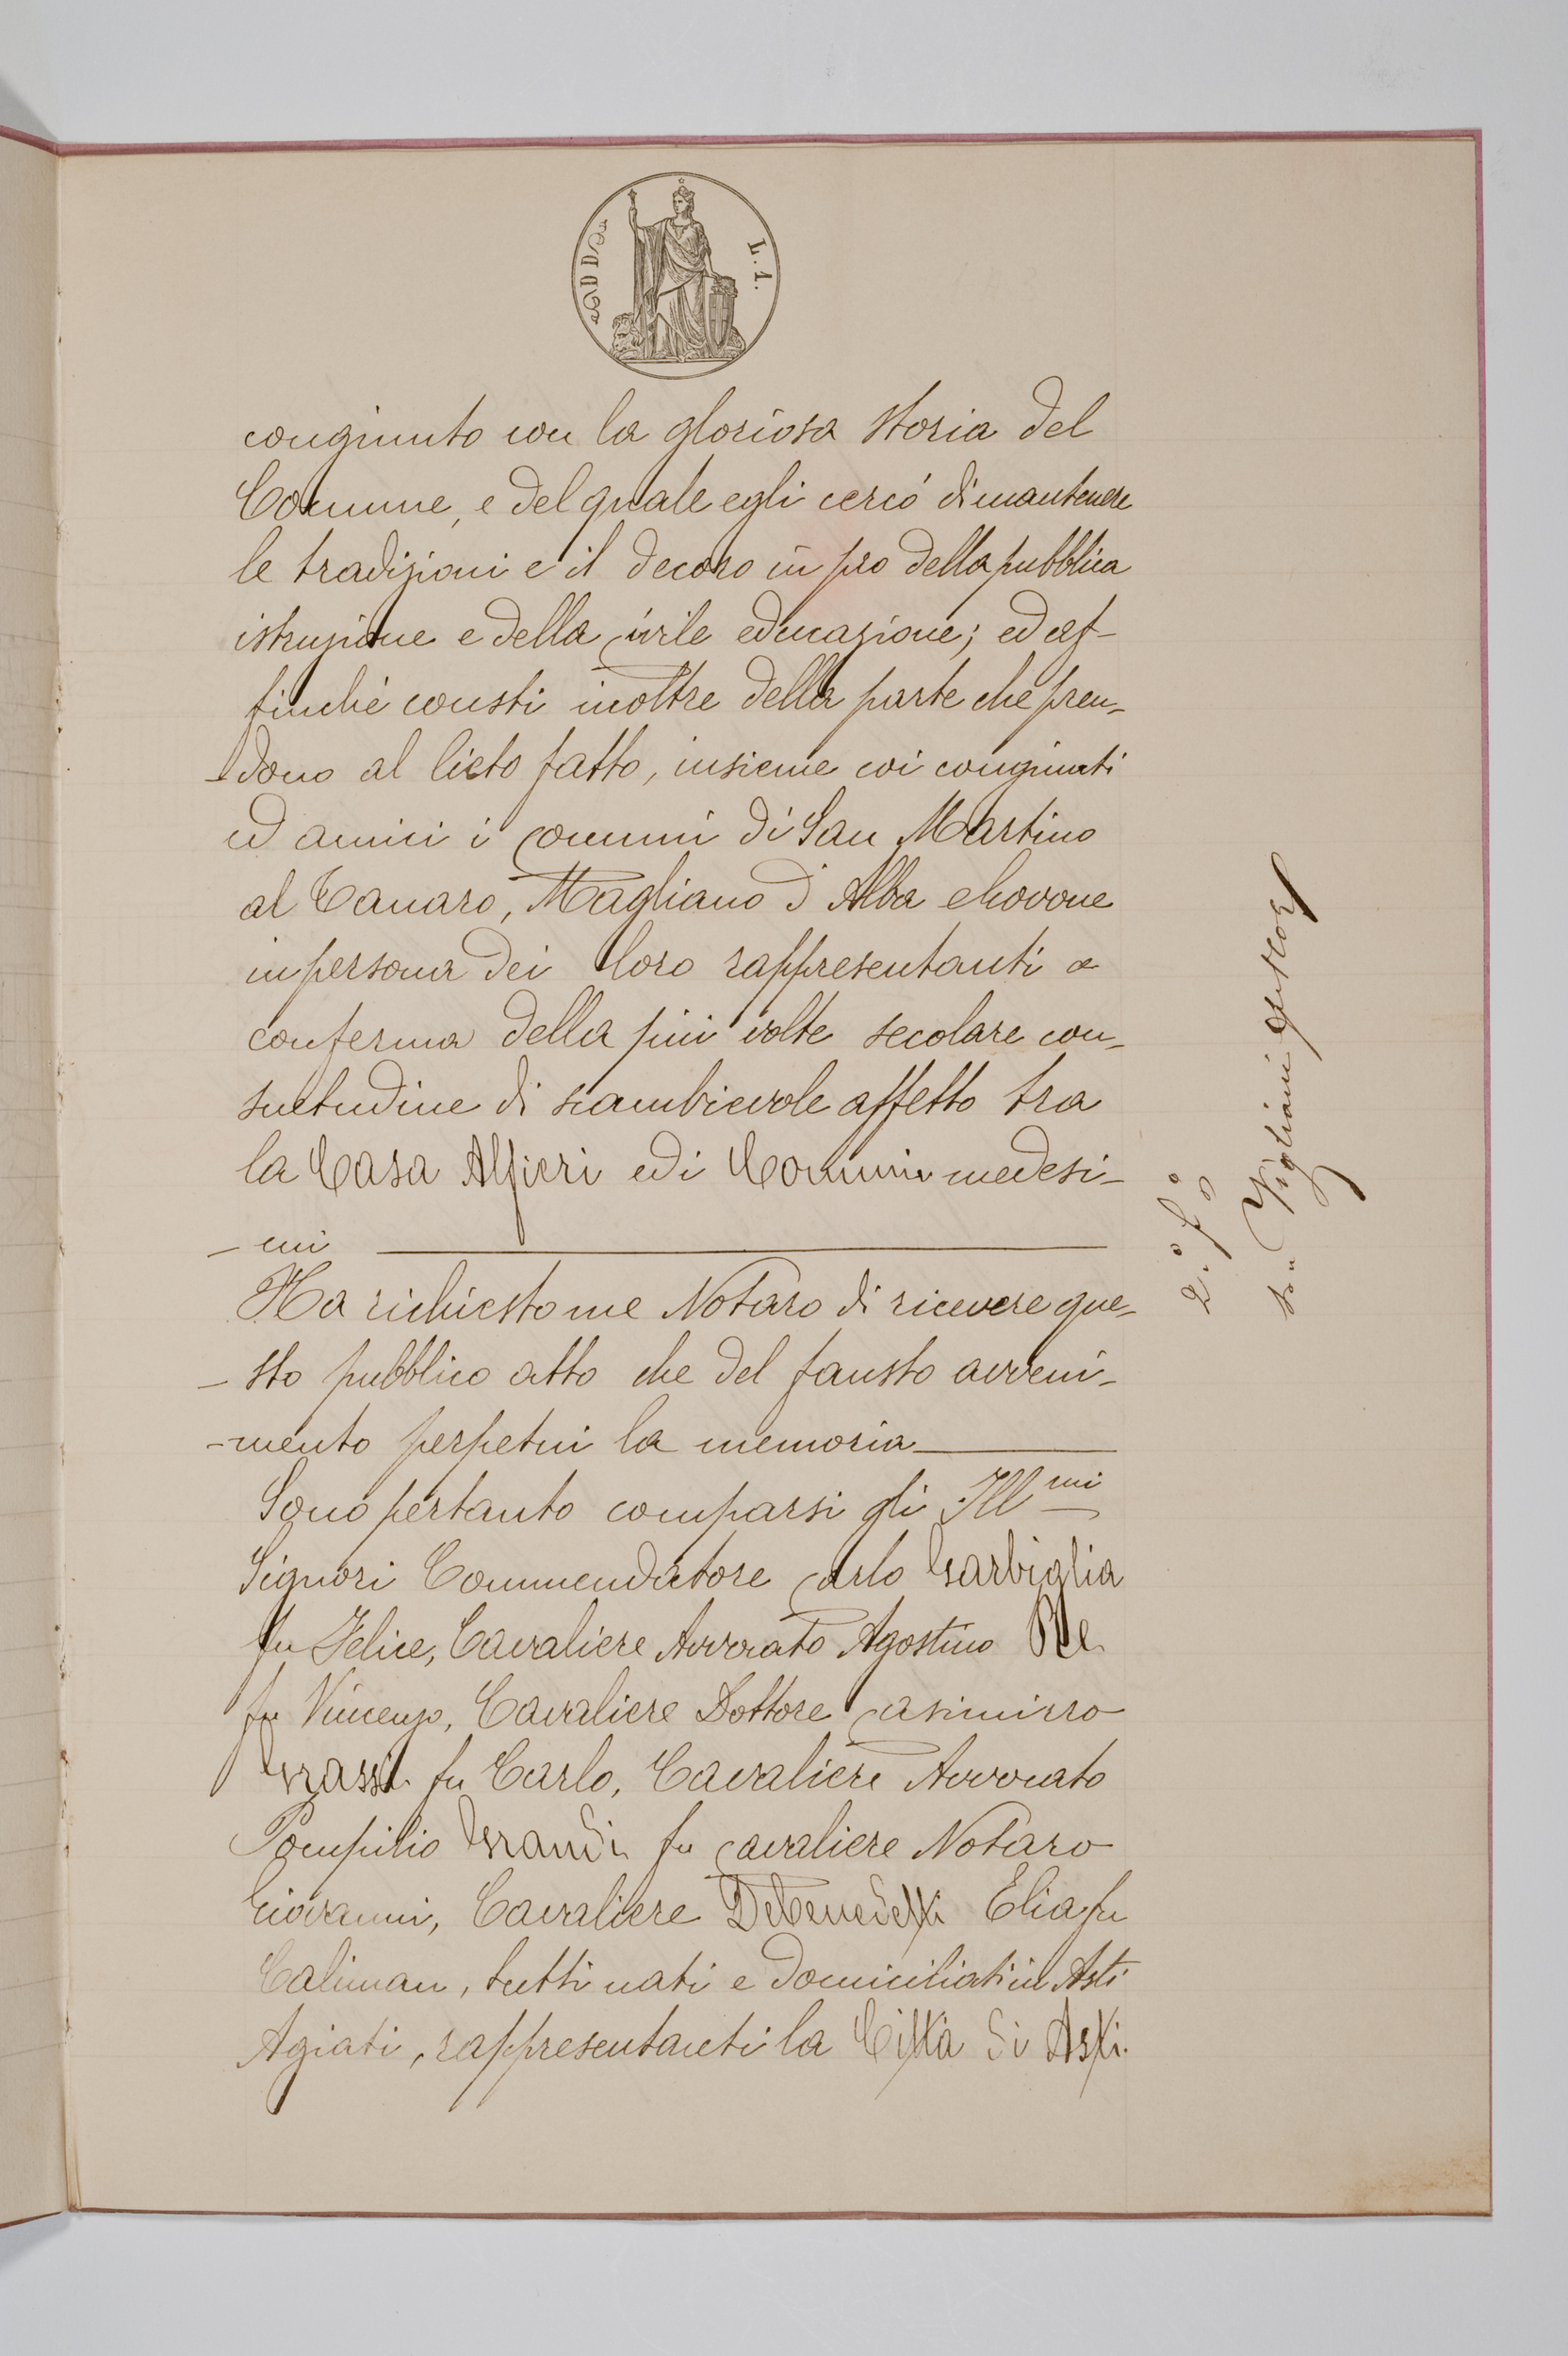 L. 1.
congiunto con la gloriosa storia del
Comune, e del quale egli cercó di mantenere
le tradizioni e il decoro in pro della pubblica
istruzione e della civile educazione; ed af-
finché consti inoltre della parte che pren-
-dono al lieto fatto, insieme coi congiunti
ed amici i Comuni di San Martino
al Tanaro, Magliano d'Alba e Govone
in persona dei loro rappresentanti a
conferma della più volte secolare con-
suetudine di scambievole affetto tra
la Casa Alfieri ed i Comuni medesi-
- mi
Ha richiesto me Notaro di ricevere que-
- sto pubblico atto che del fausto avveni-
-mento perpetui la memoria
Sono pertanto comparsi gli Ill mi
Signori Commendatore Carlo Garbiglia
fu Felice, Cavaliere Avvocato Agostino
fu Vincenzo, Cavaliere Dottore Casimirro
Grassi fu Carlo, Cavaliere Avvocato
Pompilio Grandi fu Cavaliere Notaro
Giovanni, Cavaliere Debenedetti Elia fu
Caliman, tutti nati e domiciliati in Asti
Agiati, rappresentanti la Città di Asti.
2.° f.°
Vigliani